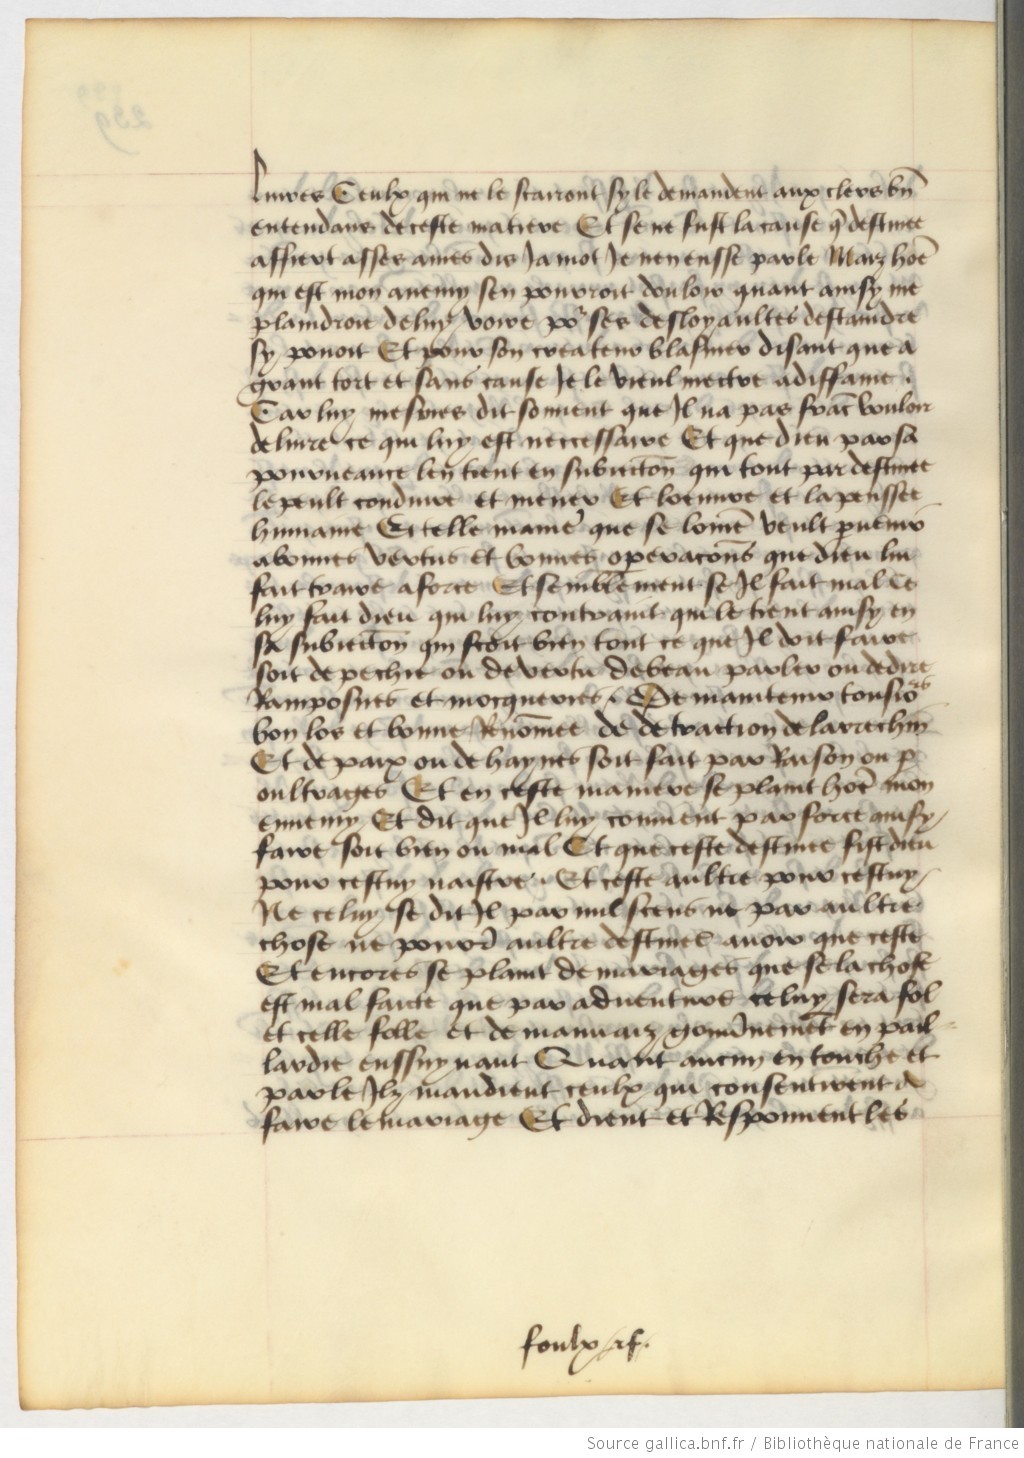 liures Ceulx qui ne le scarront sy le demandent aux clers bn̄
entendans de ceste matiere Et se ne fust la cause q̄ destinee
affiert asses ames dis Ja mot Je nen eusse parle Maiz hōe
qui est mon anemy sen pourroit douloir quant ainsy me
plaindroie de luy voire po^r ses desloyaultes destaindre
sy pouoit Et pour son createur blasmer disant que a
grant tort et sans cause Je le vieul mectre a diffame .
Car luy mesmes dit souuent que Il na pas franc vouloir
de luire ce qui luy est neccessaire Et que dieu par sa
pourueance len tient en subiection̄ qui tout par destinee
le peult conduire et mener Et loeuure et la pensee
humaine En telle manie' que se lom̄e veult p̄uenir
a bonnes vertus et bonnes operacons̄ que dieu lui
fait traire a force Et semblem̄ent se Il fait mal Ce
luy fait dieu qui luy contraint qui le tient ainsy en
sa subiection̄ qui scet bien tout ce que Il doit faire
soit de pechie ou de vertu de beau parler ou de dire
Ramposnes et mocqueries . De maintenir tousio^rs
bon los et bonne Renom̄ee de detraction de larrechin
Et de paix ou de haynes soit fait par Raison ou p̄
oultrages Et en ceste maniere se plaint hōe mon
ennemy Et dit que Il luy conuient par force ainsy
faire soit bien ou mal Et que ceste destinee fist dieu
pour cestuy naistre . Et ceste aultre pour cestuy
Ne celuy se dit Il par nul scens ne par aultre
chose ne pourr̄ aultre destinee auoir que ceste
Et encores se plaint de mariages que se la chose
est mal faicte que par aduenture celuy sera fol
et celle folle et de mauuaiz gouu̓nement en pail
lardie enssuyuant Quant aucun en touche et
parle Ilz maudient ceulx qui consentirent a
faire le mariage Et dient et Responnent les
foulx / af.
Source gallica.bnf.fr / Bibliothèque nationale de France